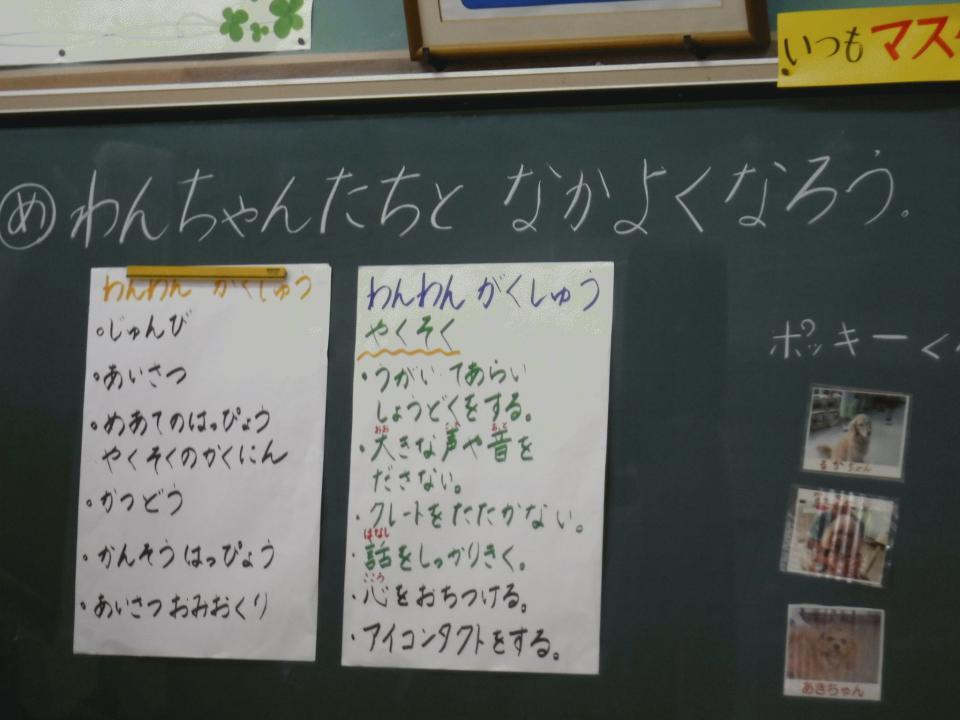 いつもマス
めわんちゃんたちと なかよくなろう。
わんわん がくしゅう
・じゅんび
・あいさつ
・めあてのはっぴょう
やくそくのかくにん
・かつどう
・かんそうはっぴょう
・あいさつおみおくり
わんわん がくしゅう
やくそく
・うがい てあらい
しょうどくをする。
おお こえ おと
・大きな声や音を
ださない。
・クレートをたたかない。
はなし
・話をしっかりきく。
こころ
・心をおちつける。
・アイコンタクトをする。
ポッキーく
るかちゃん
あきちゃん